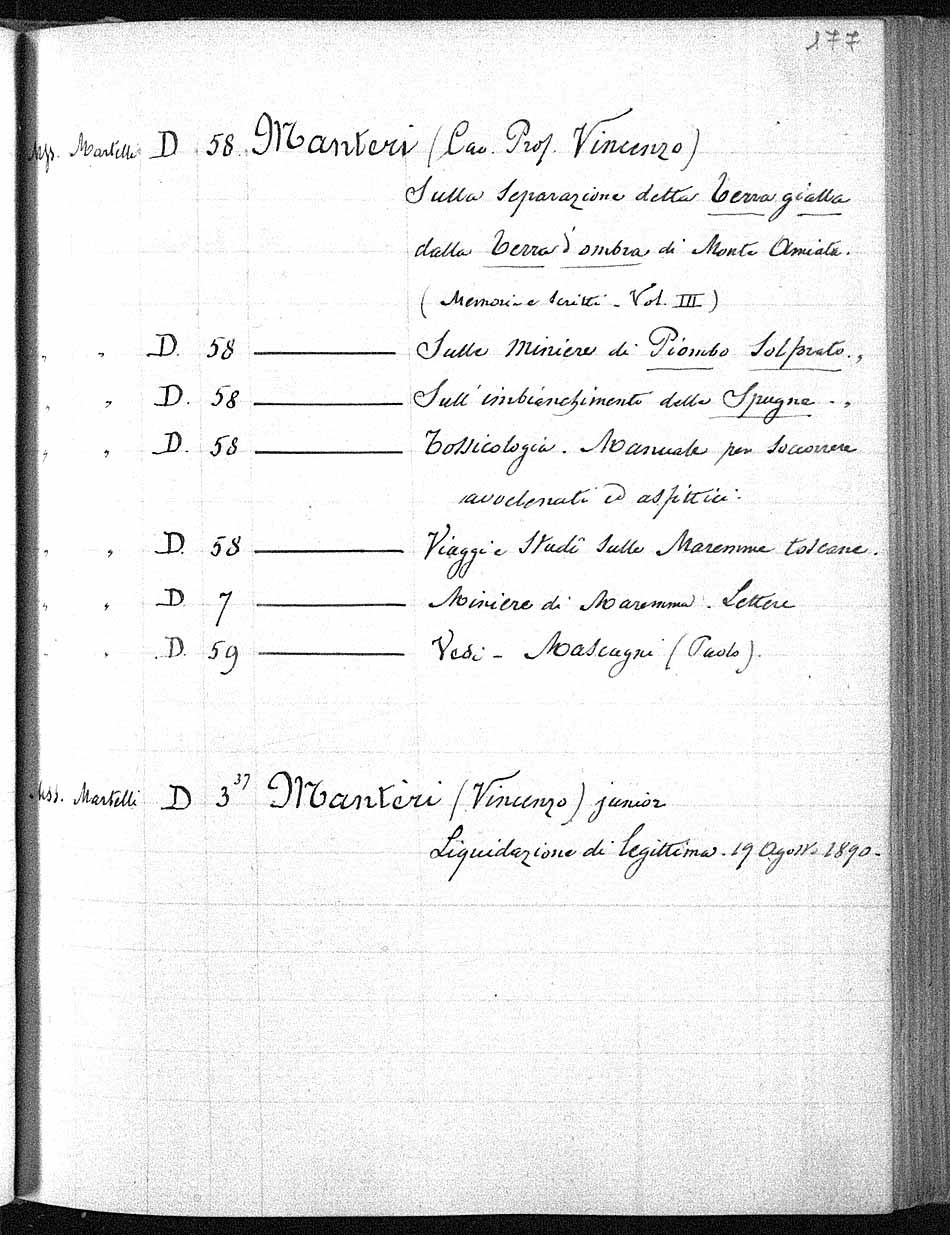 177
Mss. Martelli D 58 Manteri (Cav. Prof. Vincenzo)
Sulla separazione della terra gialla
dalla terra d'ombra di Monte Amiata.
(Memorie e scritti - Vol. III)
" " D. 58 ——— Sulle miniere di Piombo Solforato. "
" " D. 58 ——— Sull'imbianchimento delle Spugne - "
" " D. 58 ——— Tossicologia. Manuale per soccorrere
avvelenati ed asfittici.
" " D. 58 ——— Viaggi e studî sulle Maremme toscane.
" " D. 7 ——— Miniere di Maremma. Lettere
" " D. 59 ——— Vedi - Mascagni (Paolo).
Mss. Martelli D 3 37 Mantèri (Vincenzo) junior
Liquidazione di legittima. 19 Agosto 1890.